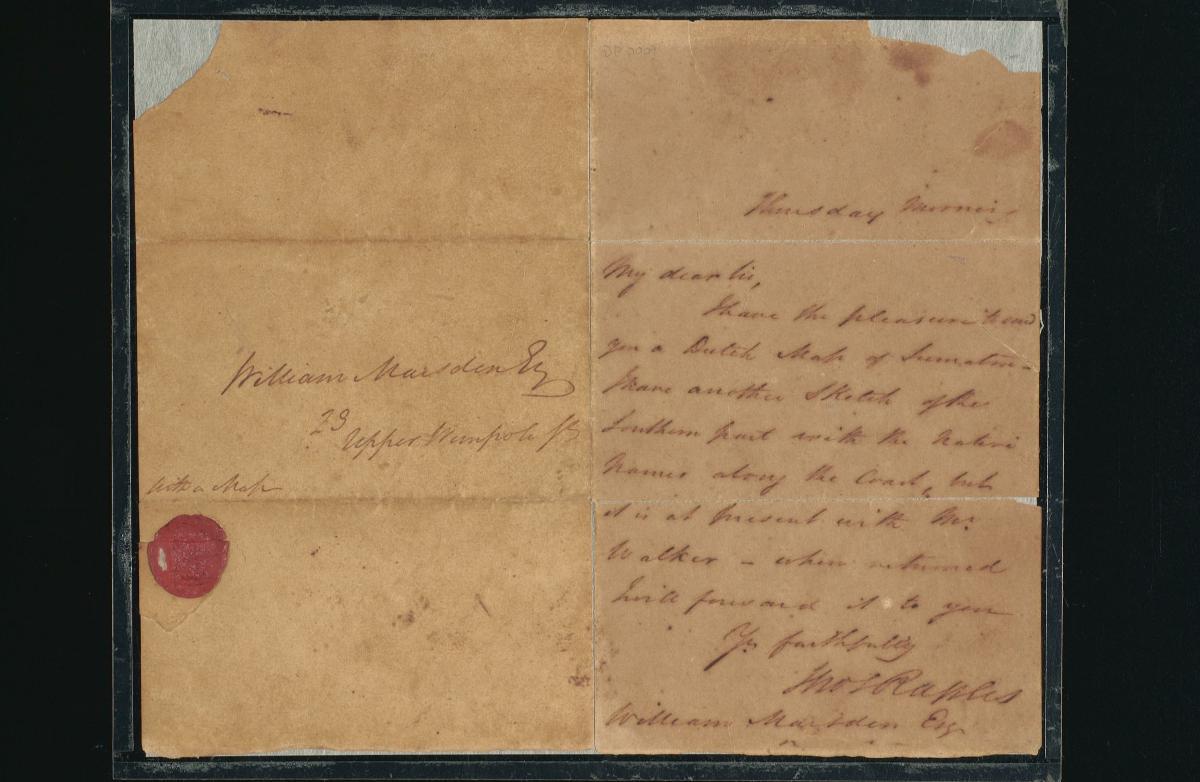 William Marsden Esq
23
Upper Wimpole St
with a Map
Thursday Morning
My dear Sir,
I have the pleasure to send
you a Dutch Map of Sumatra -
I have another Sketch of the
Southern part with the Native
Names along the Coast, but
it is at present with Mr
Walker - when returned
I will forward it to you
Yrs faithfully
Thos S Raffles
William Marsden Esq